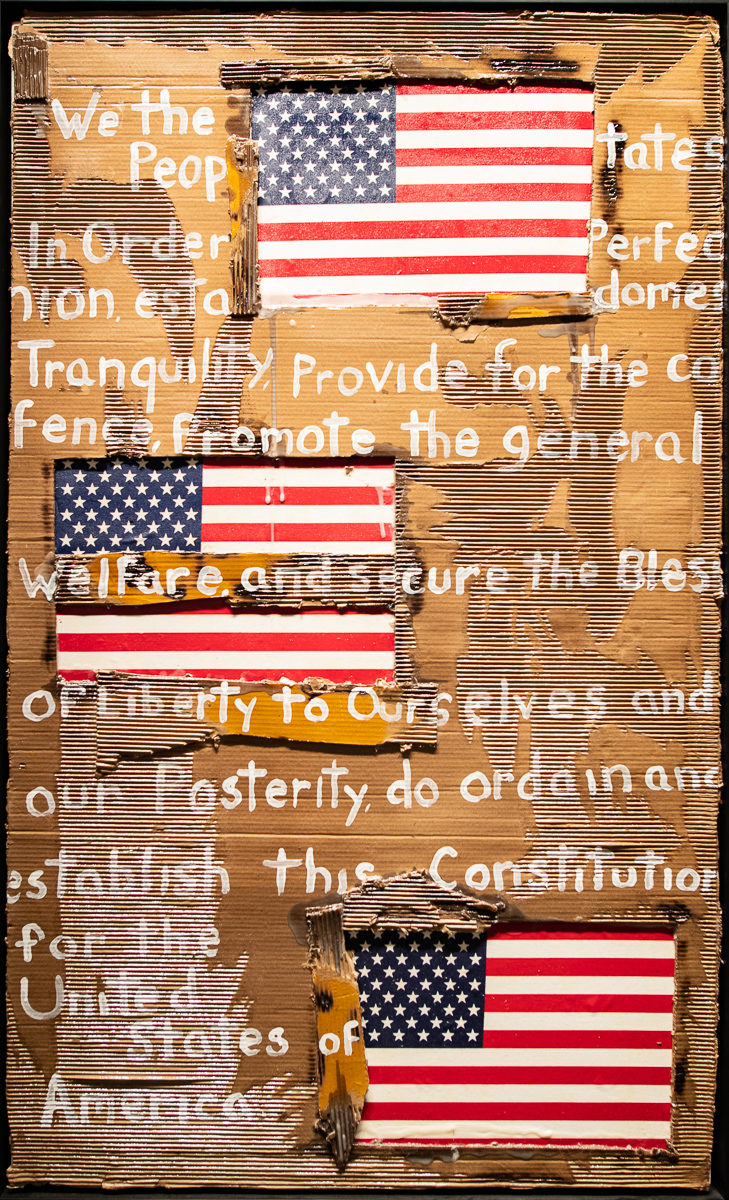 We the tates
Peop
In Order Perfec
nion, esta domes
Tranquility, Provide for the co
fence, Promote the general
Welfare, and secure the Bles
of Liberty to Ourselves and
our Posterity, do ordain and
establish this Constitution
for the
United
States of
America